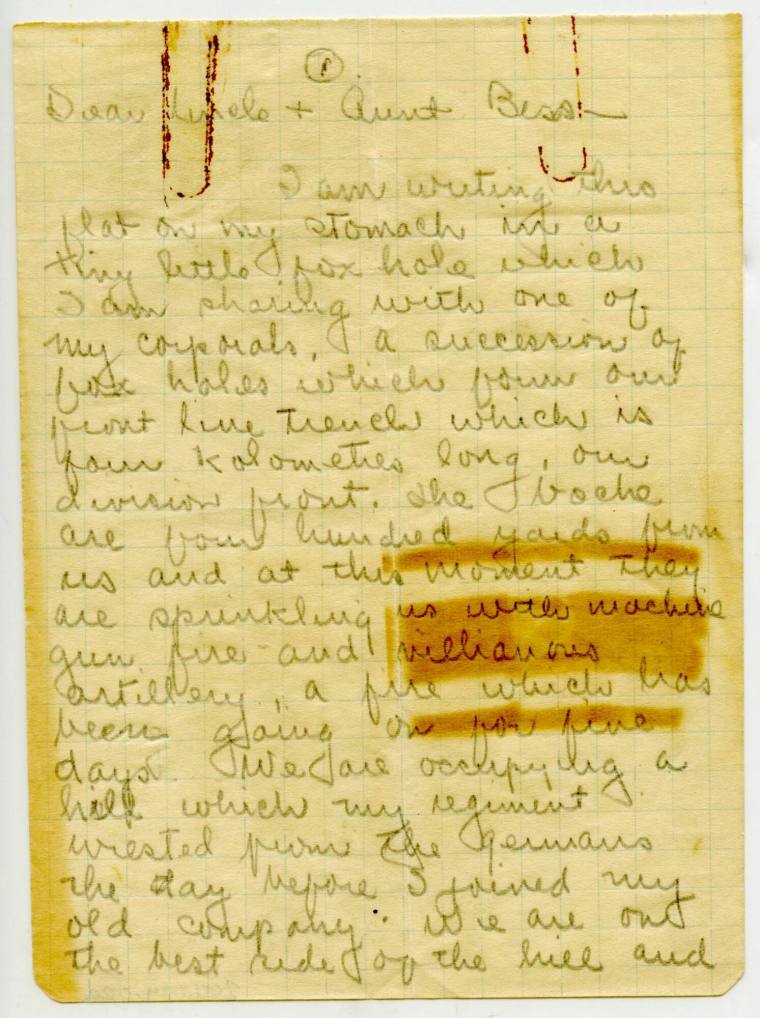 1
Dear Uncle + Aunt Bess—
I am writing this
flat on my stomach in a
tiny little fox hole which
I am sharing with one of
my corporals, a succession of
fox holes which form our
front line trench which is
four Kolometres long, our
division front. The Boche
are four hundred yards from
us and at this moment they
are sprinkling us with machine
gun fire and villianous
artillery, a fire which has
been going on for five
days. We are occupying a
hill which my regiment
wrested from the Germans
the day before I joined my
old company. We are on
the best side of the hill and